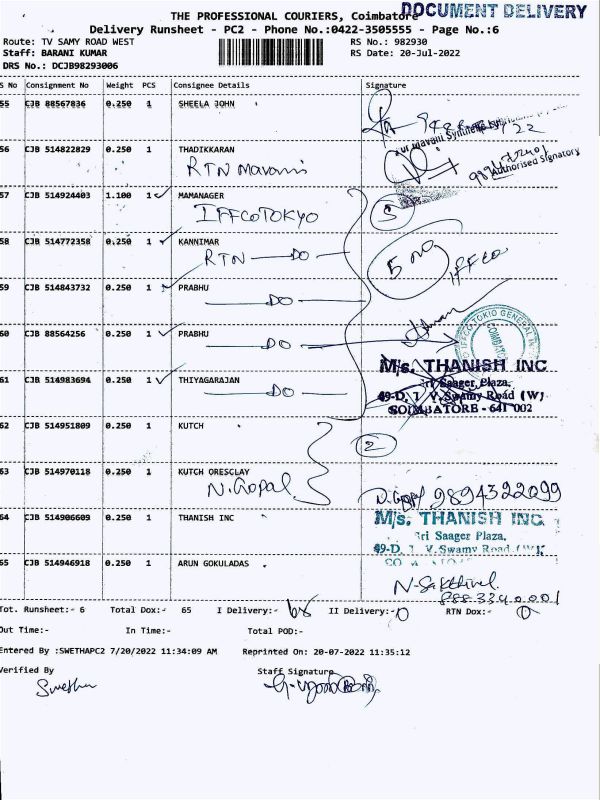 DOCUMENT DELIVERY
THE PROFESSIONAL COURIERS, Coimbatore
Delivery Runsheet - PC2 - Phone No.:0422-3505555 - Page No.:6
Route: TV SAMY ROAD WEST
RS No.: 982930
Staff: BARANI KUMAR
RS Date: 20-Jul-2022
DRS No.: DCJB98293006
S No Consignment No Weight PCS Consignee Details Signature
55 CJB 88567836 0.250 1 SHEELA JOHN
56 CJB 514822829 0.250 1 THADIKKARAN
RTN Mavani
Authorised Signatory
57 CJB 514924403 1.100 1 MAMANAGER
IFFCOTOKYO
5
58 CJB 514772358 0.250 1 KANNIMAR
RTN — DO —
5 nos
IFFCO
59 CJB 514843732 0.250 1 PRABHU
— DO —
60 CJB 88564256 0.250 1 PRABHU
— DO —
M/s. THANISH INC
61 CJB 514983694 0.250 1 THIYAGARAJAN
— DO —
Sri Saager Plaza,
49-D, T. V. Swamy Road (W)
COIMBATORE - 641 002
62 CJB 514951809 0.250 1 KUTCH
2
63 CJB 514970118 0.250 1 KUTCH ORESCLAY
N.Gopal
N.Gopal 9894322099
64 CJB 514906609 0.250 1 THANISH INC
M/s. THANISH INC.
Sri Saager Plaza,
49-D, T. V. Swamy Road (W)
65 CJB 514946918 0.250 1 ARUN GOKULADAS
N-Sakthivel
Tot. Runsheet:- 6 Total Dox:- 65 I Delivery:- II Delivery:- 0 RTN Dox:- 0
Out Time:- In Time:- Total POD:-
Entered By :SWETHAPC2 7/20/2022 11:34:09 AM Reprinted On: 20-07-2022 11:35:12
Verified By Staff Signature
Swetha